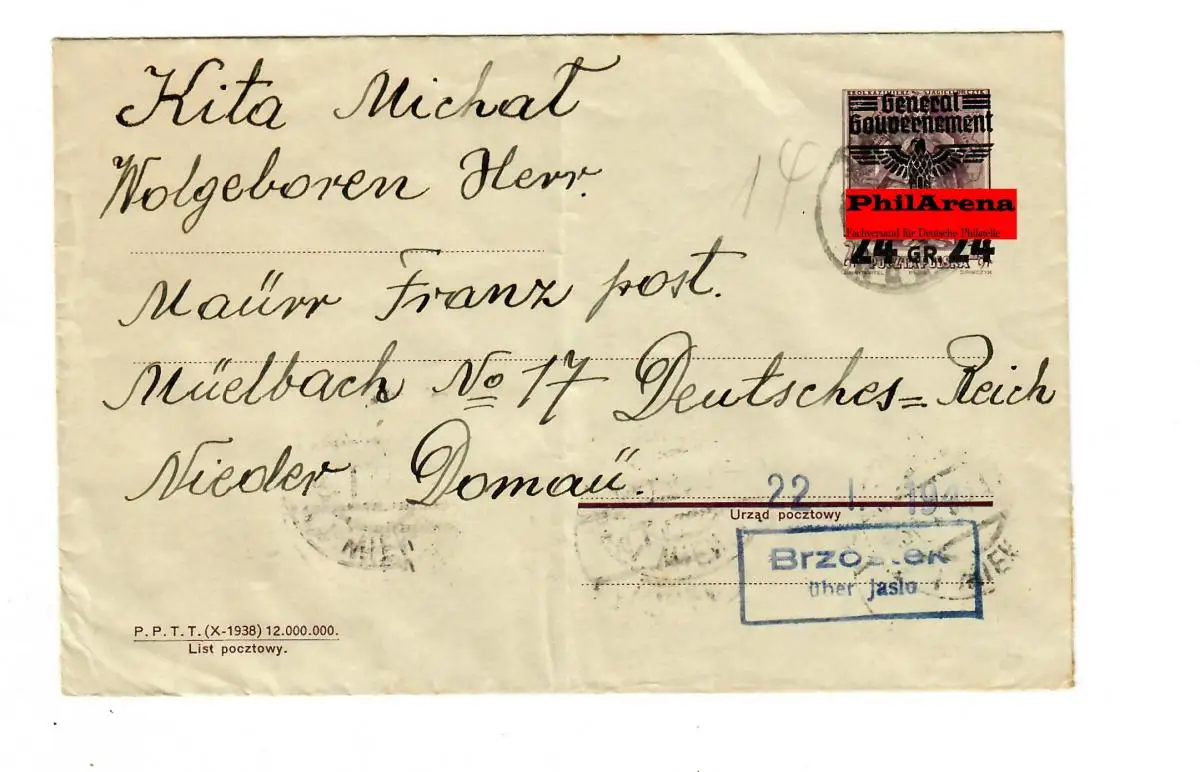 Kita Michał
Wolgeboren Herr.
Maürr Franz post.
Müelbach No 17 Deutsches = Reich
Nieder Domaü.
14
General
Gouvernement
PhilArena
Fachversand für Deutsche Philatelie
24 GR. 24
POCZTA POLSKA
22. I.
Urząd pocztowy
Brzostek
über Jaslo
P.P.T.T. (X-1938) 12.000.000.
List pocztowy.